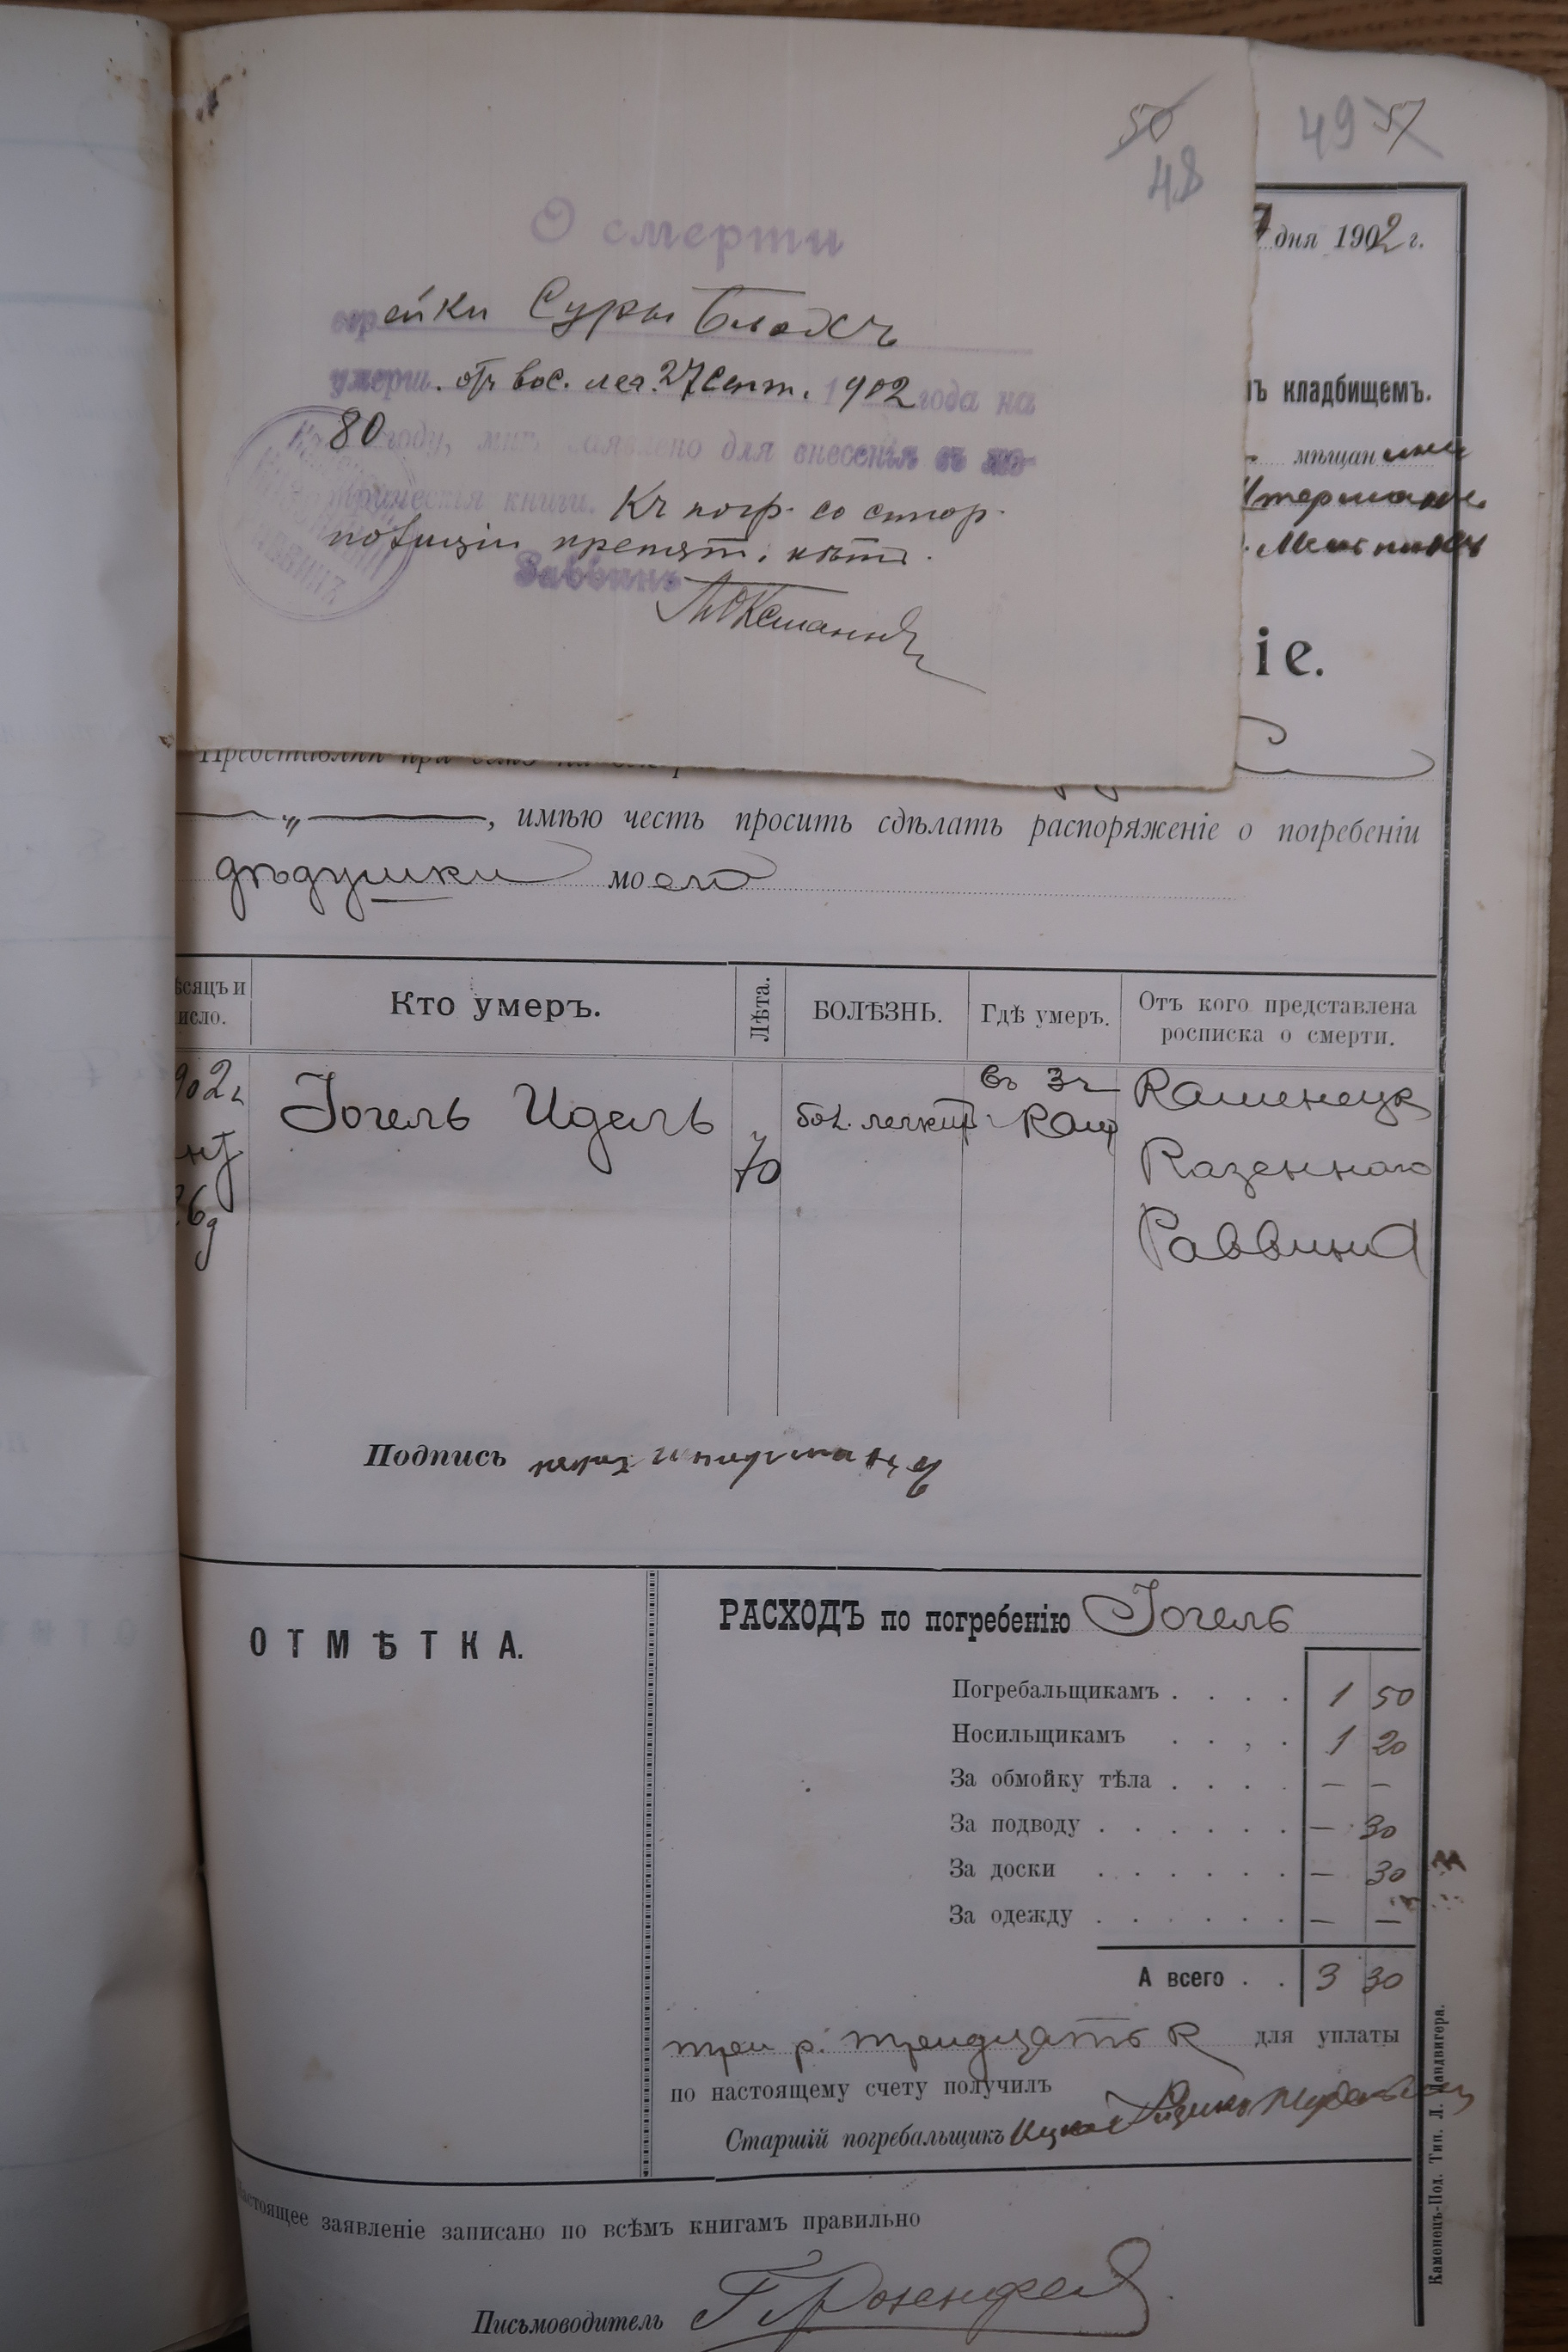 50
48
49 51
О смерти
еврейки Суры Блохъ
умерш. отъ вос. лег. 27 Сент. 1902 года на
80 году, мнѣ заявлено для внесенія въ ме-
трическія книги. Къ погр. со стор.
полиціи препят. нѣтъ.
Раввинъ
7 дня 1902 г.
ъ кладбищемъ.
мѣщанин
Мельникъ
іе.
Представляя при семъ
„ , имѣю честь просить сдѣлать распоряженіе о погребеніи
дѣдушки моего
ѣсяцъ и число. Кто умеръ. Лѣта. БОЛѢЗНЬ. Гдѣ умеръ. Отъ кого представлена росписка о смерти.
902 г. Іогель Идель 70 бол. легкихъ въ Каменецк
Казеннаго
26 д Раввина
Подпись
ОТМѢТКА.
РАСХОДЪ по погребенію Іогель
Погребальщикамъ . . . . 1 50
Носильщикамъ . . , . 1 20
За обмойку тѣла . . . . — —
За подводу . . . . . . — 30
За доски . . . . . . — 30
За одежду . . . . . . — —
А всего . . 3 30
три р. тридцать к для уплаты
по настоящему счету получилъ
Старшій погребальщикъ
Настоящее заявленіе записано по всѣмъ книгамъ правильно
Письмоводитель Г Розенфельд
Каменецъ-Под. Тип. Л. Ландвигера.